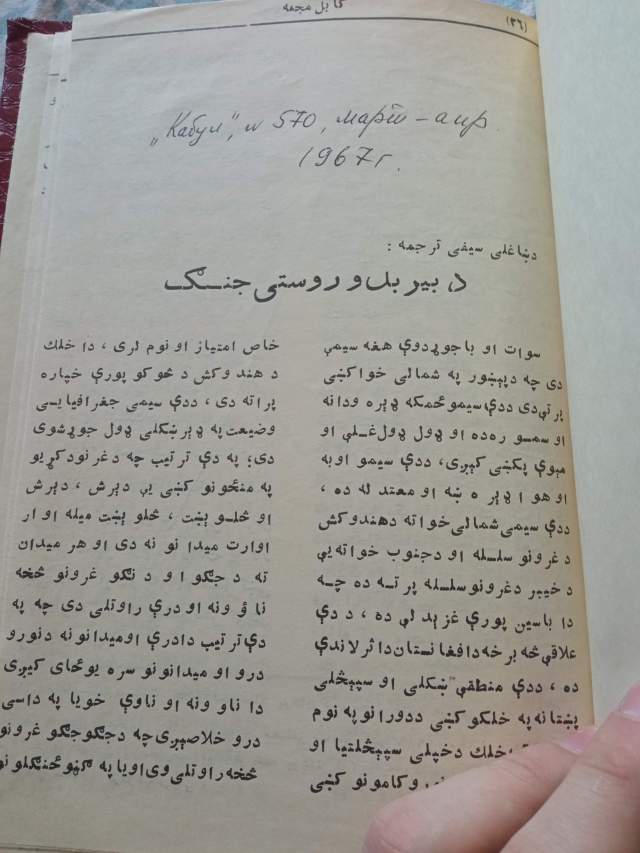 کابل مجله
(۳۶)
„Кабул", № 570, март – апр
1967 г.
دښاغلی سیفی ترجمه :
د، بیربل وروستی جنـــګ
سوات او باجوړدوې هغه سیمې
دی چه دپېښور په شمالی خواکښی
پرتې‌دی ددې سیموځمکه ډېره ودانه
او سمـو ره‌ده او ډول ډول‌غـلې او
مېوې پکښی کېږی، ددې سیمو اوبه
او هوا ډېر ه ښه او معتد له ده ،
ددې سیمې شمالی خواته دهندوکش
د غرونو سلـسله او دجنوب خواته‌یې
د خیبر دغرونو سلـسله پر تـه ده چـه
دا باسین پورې غزېد لې ده ، د دې
علاقې څه برخه دافغانستان‌دا ثر لاندې
ده ، ددې منطقې ښکلی او سپېڅلی
پښتانه په خلکو کښی ددورانو په نوم
خلك دخپلې سپېڅلتیا او
وکامونو کښی
خاص امتیاز او نوم لری ، دا خلك
د هند وکش د څوکو پورې خپاره
پراته دی ، ددې سیمې جغرافیایـی
وضعیت په ډېر ښکلی ډول جوړشوی
دی؛ په دې تر تیب چه د غر نودکړیو
په منځونو کښی یې دېرش ، دېرش
او څلـو ېښت ، څلو ېښت میله او ار
اوارت میدا نو نه دی او هر میدان
ته د جګو او د نګو غرونو څخه
نا ؤ ونه او درې راوتلی دی چه په
دې ترتیب دادرې اومیدانونه دنورو
درو او میدانونو سره یوځای کیږی
دا ناو ونه او ناوې خویا په داسی
درو خلاصېږی چه دجګوجګو غرونو
څخه راوتلی وی اویا په ګڼوځنګلونو